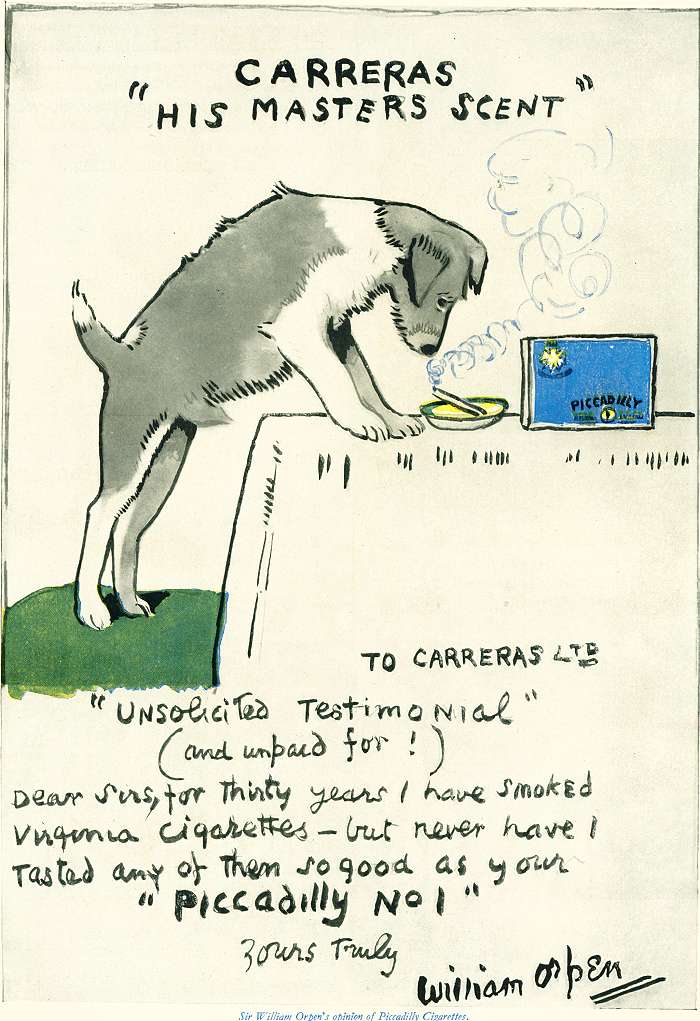 CARRERAS
"HIS MASTERS SCENT"
PICCADILLY
TO CARRERAS LTD
"UNSOLICITED TESTIMONIAL"
(and unpaid for!)
Dear Sirs, for Thirty years I have smoked
Virginia Cigarettes – but never have I
Tasted any of them so good as your
"PICCADILLY NO 1"
Yours Truly
William Orpen
Sir William Orpen's opinion of Piccadilly Cigarettes.